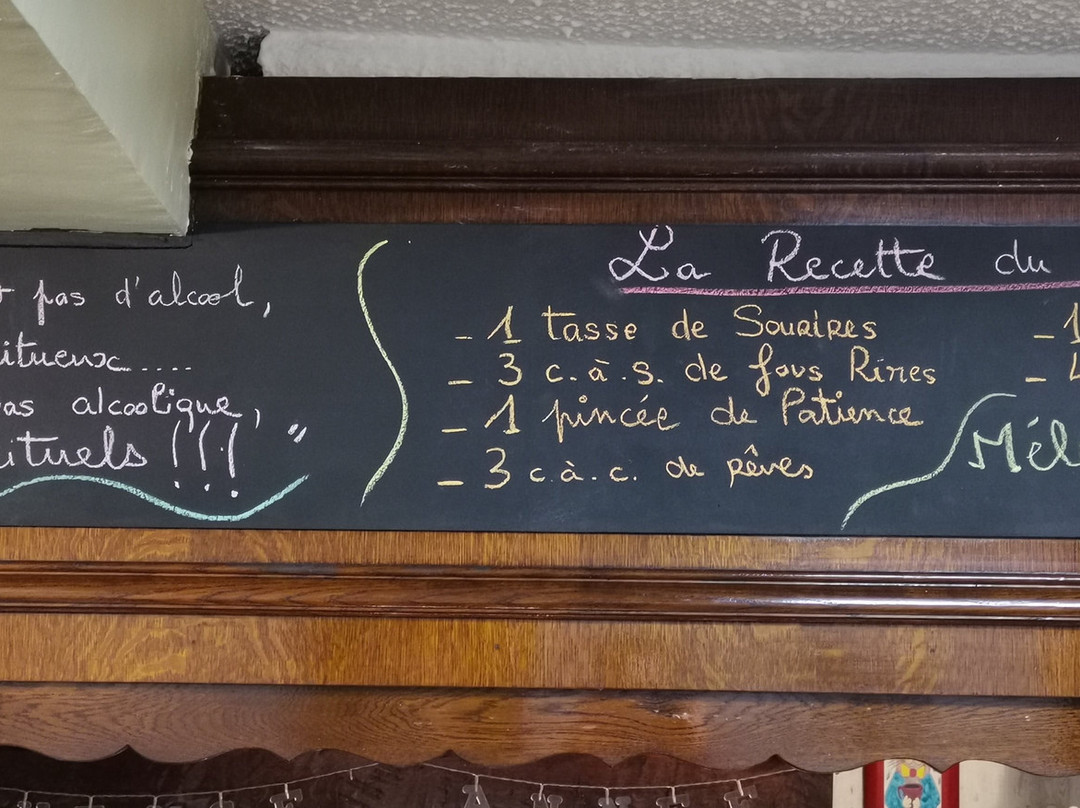 pas d'alcool,
ituenx.....
as alcoolique,
ituels !!! "
La Recette du
- 1 tasse de Souaires
- 3 c.à.s. de fous Rires
- 1 pincée de Patience
- 3 c.à.c. de rêves
- 1
- 4
Mél